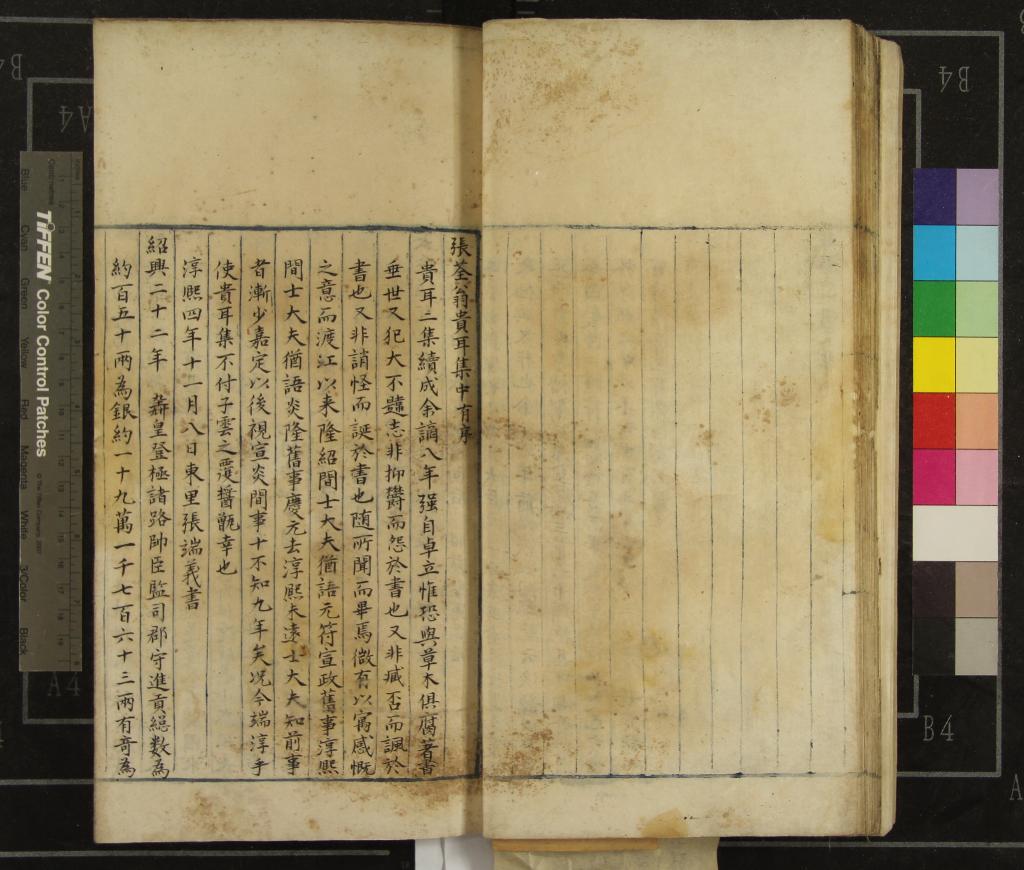 張荃翁貴耳集中有序
貴耳二集續成余謫八年强自卓立惟恐與草木俱腐著書
垂世又犯大不韙志非抑欝而怨於書也又非臧否而諷於
書也又非誚怪而誕於書也随所聞而畢焉微有以寓感慨
之意而渡江以来隆紹間士大夫猶語元符宣政舊事淳熙
間士大夫猶語炎隆舊事慶元去淳熙未遠士大夫知前事
者漸少嘉定以後視宣炎間事十不知九年矣况今端淳乎
使貴耳集不付子雲之覆醬甑幸也
淳熈四年十一月八日東里張端義書
紹興二十二年 壽皇登極諸路帥臣監司郡守進貢縂数為
約百五十兩為銀約一十九萬一千七百六十三兩有奇為
TIFFEN Color Control Patches
© The Tiffen Company, 2007
Blue
Cyan
Green
Yellow
Red
Magenta
White
3/Color
Black
Centimetres
A4
A4
B4
B4
B4